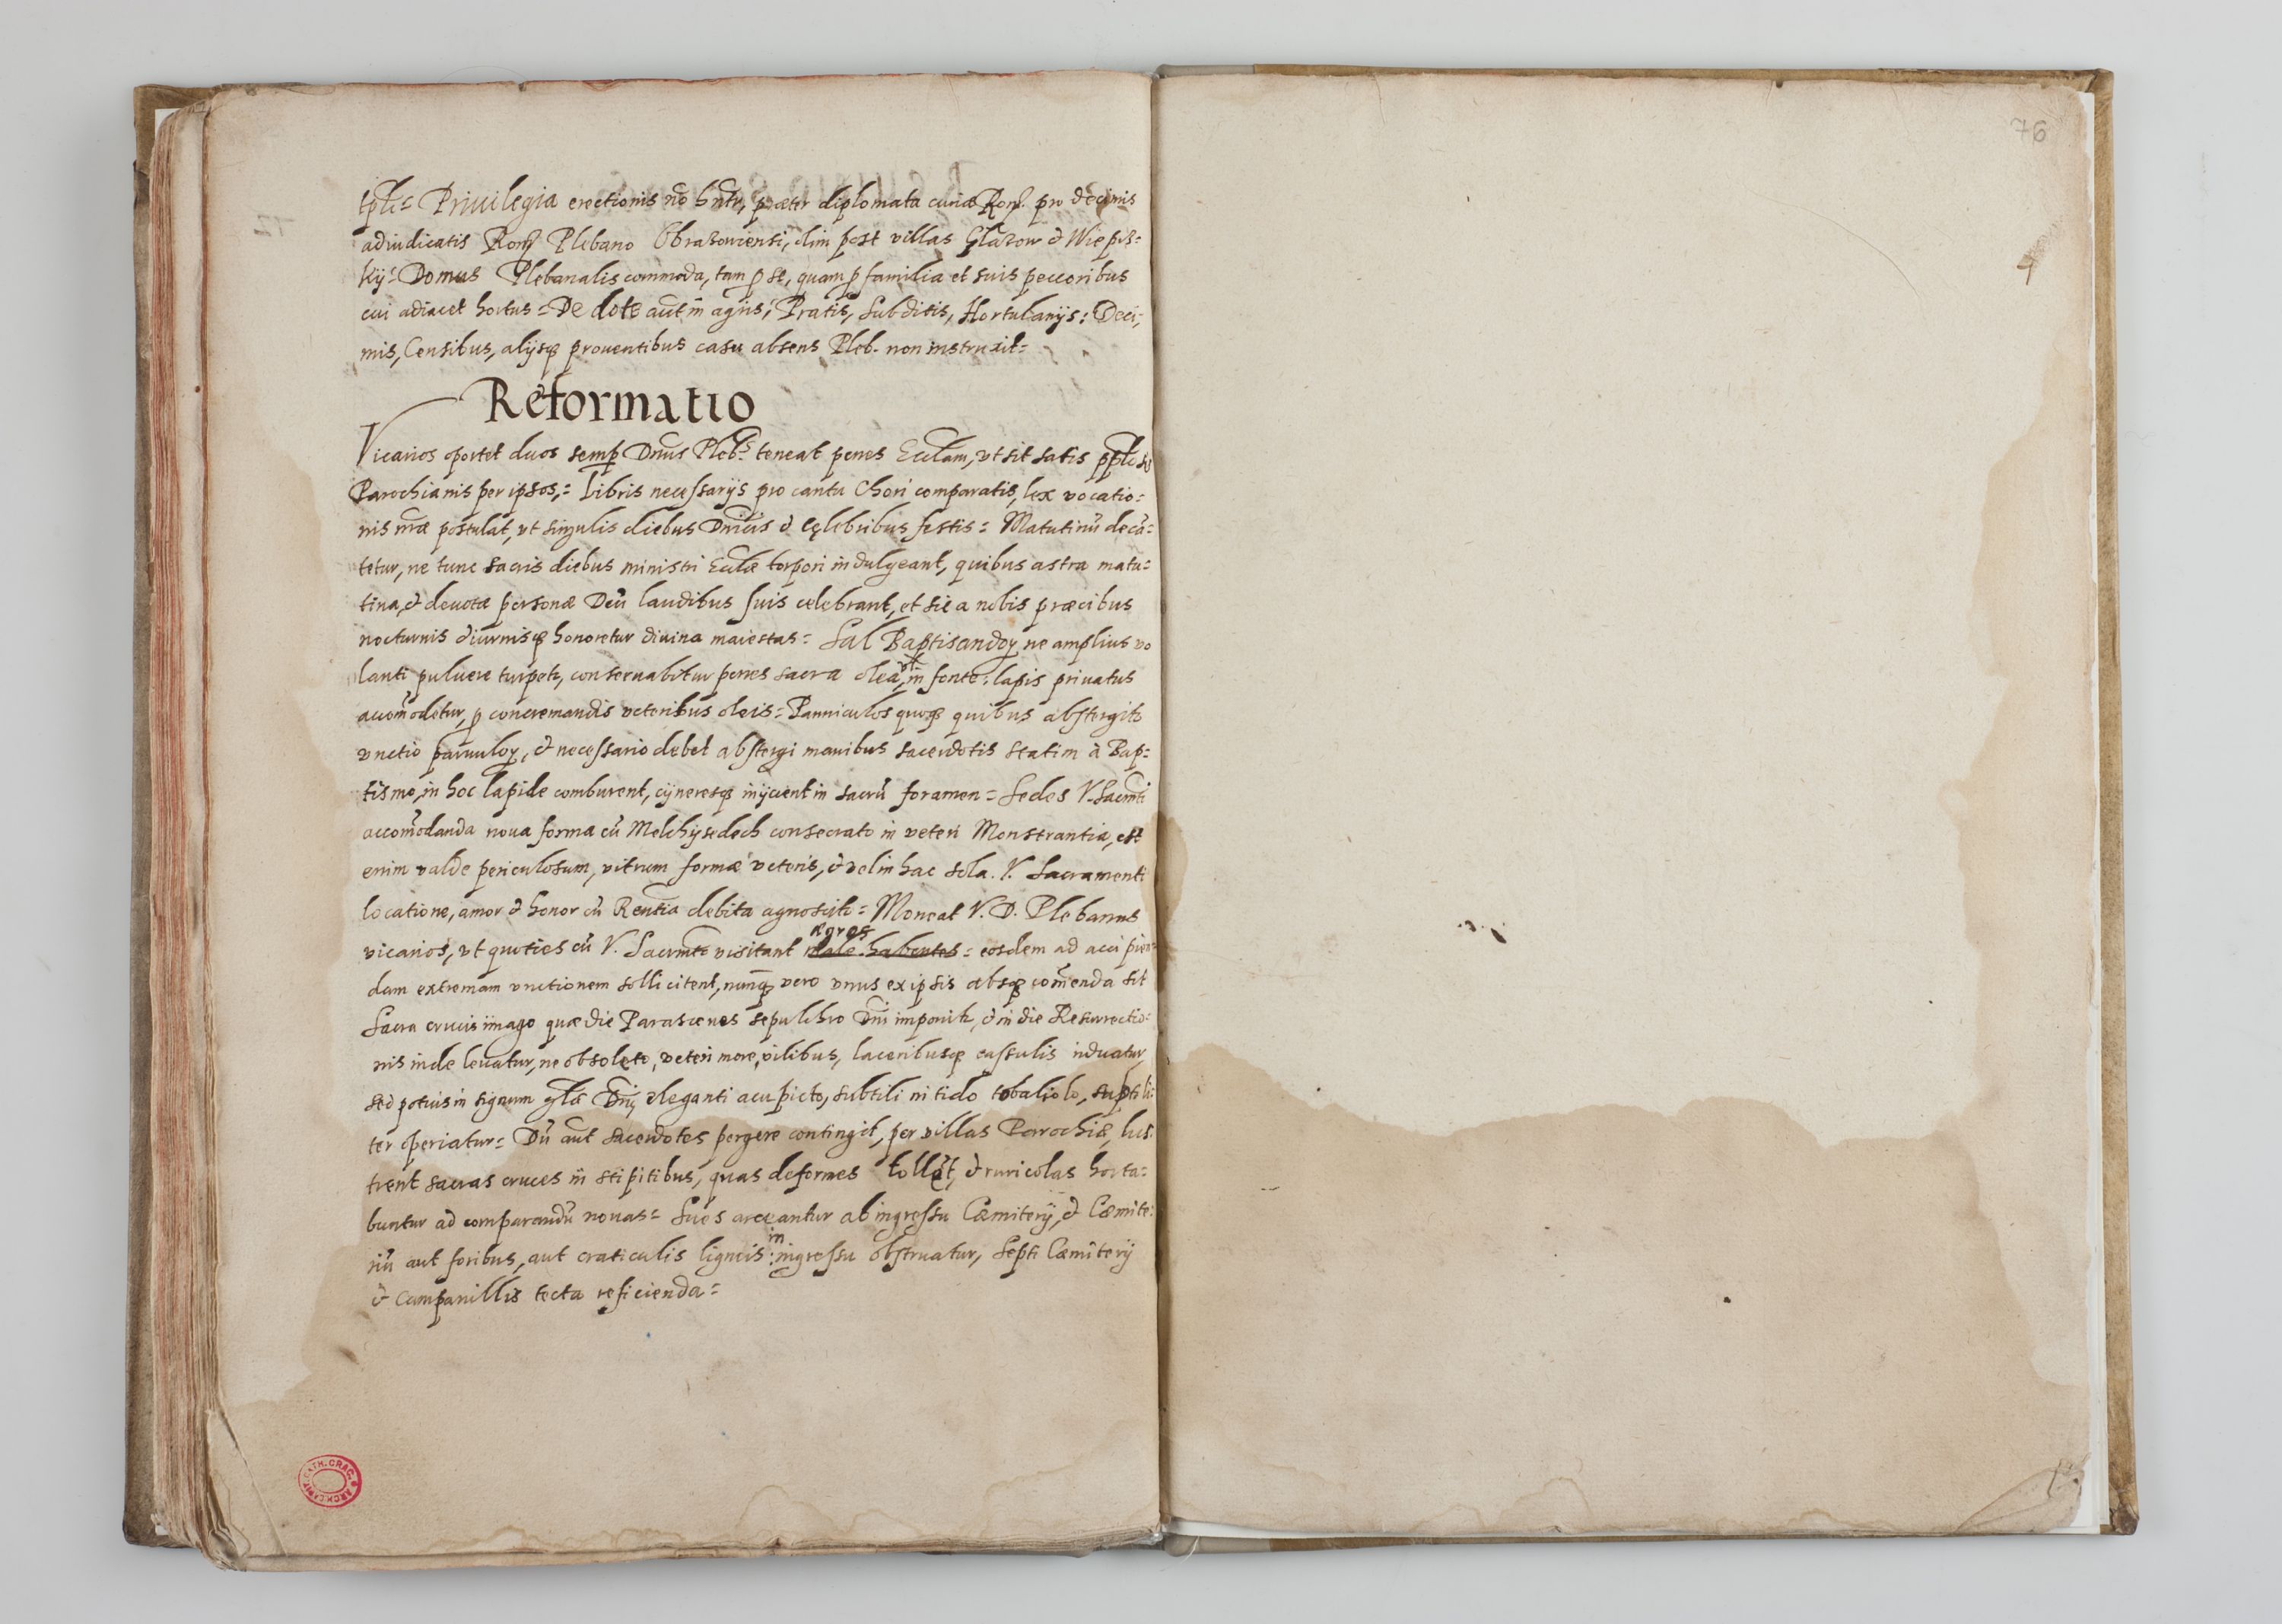 Priuilegia erectionis nō hntr, præter diplomata curiæ Rom. pro decimis
adiudicatis Plebano Obrazouiensi, olim post villas Glazow & Wiepis=
kij= Domus Plebanalis commoda, tam p se, quam p familia et suis peccoribus
cui adiacet hortus= De dote aut in agris, Pratis, Subditis, Hortulanijs: Deci,
mis, Censibus, alijsq prouentibus casu absens Pleb. non instruxit=
Reformatio
Vicarios oportet duos semp Dnus Plebs teneat penes Ecclam, vt sit satis
Parochianis per ipsos,= Libris necessarijs pro cantu Chori comparatis, lex vocatio=
nis nræ postulat, vt singulis diebus Dnicis & cęlebribus festis= Matutinū decā=
tetur, ne tunc sacris diebus ministri Ecclæ torpori indulgeant, quibus astra matu=
tina, & deuotæ personæ Deū laudibus suis celebrant, et sic a nobis præcibus
nocturnis diurnisq honoretur diuina maiestas= Sal Baptisandoꝝ ne amplius vo
lanti puluere turpetr, conseruabitur penes sacra olea, in fonte: lapis priuatus
accomodetur, p concremandis veteribus oleis= Panniculos quoq quibus abstergitr
vnctio paruuloꝝ, & necessario debet abstergi manibus sacerdotis statim à Bap=
tismo, in hoc lapide comburent, cijneresq inijcient in sacrū foramen= Sedes V. Sacrmti
accomodanda noua forma cū Melchysedech consecrato in veteri Monstrantia, est
enim valde periculosum, vitrum formæ veteris, & vel in hac sola. V. Sacramenti
locatione, amor & honor cū Rentia debita agnoscitr= Moneat V. D. Plebanus
vicarios, vt quoties cū V. Sacrmto visitant ægros male habentes= eosdem ad accipien=
dam extremam vnctionem sollicitent, nunq vero vnus ex ipsis absq comenda sit
Sacra crucis imago quæ die Parasceues sepulchro Dni imponitr, & in die Resurrectio=
nis inde leuatur, ne obsoleto, veteri more, vilibus, laceribusq cassulis induatur
sed potius in signum glæ Dni eleganti acu picto, subtili nitido tobaliolo, subtili=
ter operiatur= Dū aut sacerdotes pergere contingit, per villas Parochiæ, lus=
trent sacras cruces in stipitibus, quas deformes tollāt, & ruricolas horta=
buntur ad comparandū nouas= Sues arceantur ab ingressu Cæmiterij, & Cæmite=
riū aut foribus, aut craticulis ligneis: in ingressu obstruatur, Septi Cæmiterij
& Campanillis tecta reficienda=
76